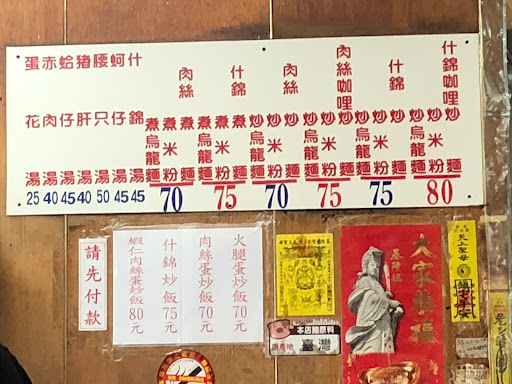 蛋花湯 25
赤肉湯 40
蛤仔湯 45
豬肝湯 40
腰只湯 50
蚵仔湯 45
什錦湯 45
煮烏龍麵
煮米粉
肉絲煮麵
70
煮烏龍麵
煮米粉
什錦煮麵
75
炒烏龍麵
炒米粉
肉絲炒麵
70
炒烏龍麵
炒米粉
肉絲咖哩炒麵
75
炒烏龍麵
炒米粉
什錦炒麵
75
炒烏龍麵
炒米粉
什錦咖哩炒麵
80
請先付款
火腿蛋炒飯70元
肉絲蛋炒飯70元
什錦炒飯75元
蝦仁肉絲蛋炒飯80元
本店豬原料
原產地 臺灣
大家恭福
天上聖母